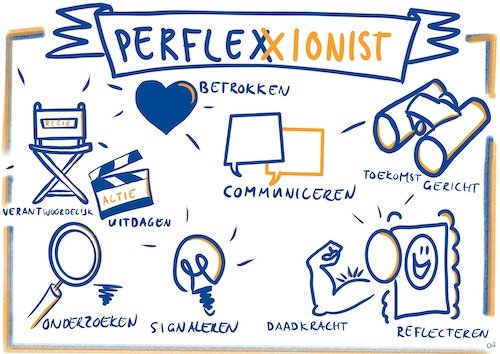 PERFLEXXIONIST
BETROKKEN
REGIE
COMMUNICEREN
TOEKOMST
GERICHT
VERANTWOORDELIJK
ACTIE
UITDAGEN
ONDERZOEKEN
SIGNALEREN
DAADKRACHT
REFLECTEREN